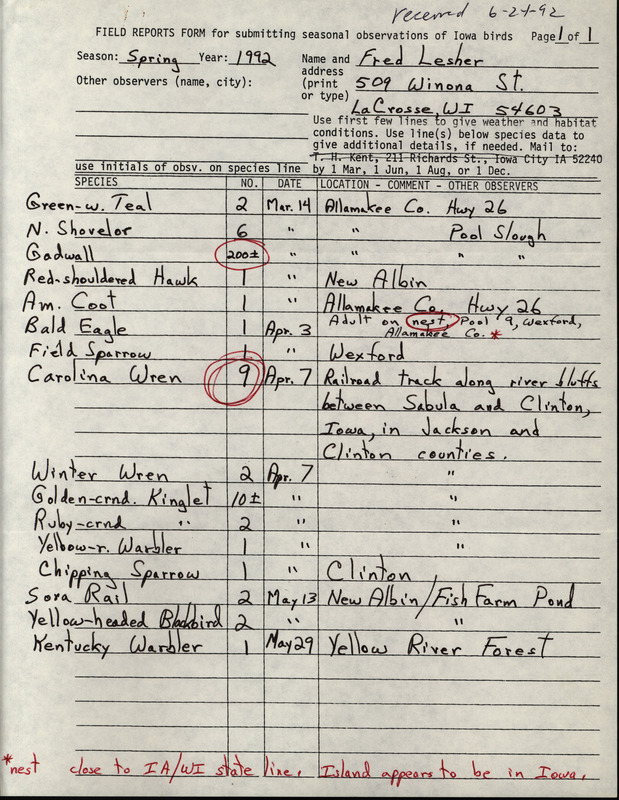 received 6-24-92
FIELD REPORTS FORM for submitting seasonal observations of Iowa birds Page 1 of 1
Season: Spring Year: 1992 Name and Fred Lesher
address
Other observers (name, city): (print 509 Winona St.
or type)
LaCrosse, WI 54603
Use first few lines to give weather and habitat
conditions. Use line(s) below species data to
give additional details, if needed. Mail to:
T. H. Kent, 211 Richards St., Iowa City IA 52240
use initials of obsv. on species line by 1 Mar, 1 Jun, 1 Aug, or 1 Dec.
SPECIES NO. DATE LOCATION - COMMENT - OTHER OBSERVERS
Green-w. Teal 2 Mar. 14 Allamakee Co. Hwy 26
N. Shovelor 6 " " Pool Slough
Gadwall 200± " " " "
Red-shouldered Hawk 1 " New Albin
Am. Coot 1 " Allamakee Co. Hwy 26
Bald Eagle 1 Apr. 3 Adult on nest, Pool 9, Wexford,
Allamakee Co. *
Field Sparrow 1 " Wexford
Carolina Wren 9 Apr. 7 Railroad track along river bluffs
between Sabula and Clinton,
Iowa, in Jackson and
Clinton counties.
Winter Wren 2 Apr. 7 "
Golden-crnd. Kinglet 10± " "
Ruby-crnd " 2 " "
Yellow-r. Warbler 1 " "
Chipping Sparrow 1 " Clinton
Sora Rail 2 May 13 New Albin/Fish Farm Pond
Yellow-headed Blackbird 2 " "
Kentucky Warbler 1 May 29 Yellow River Forest
*nest close to IA/WI state line. Island appears to be in Iowa.